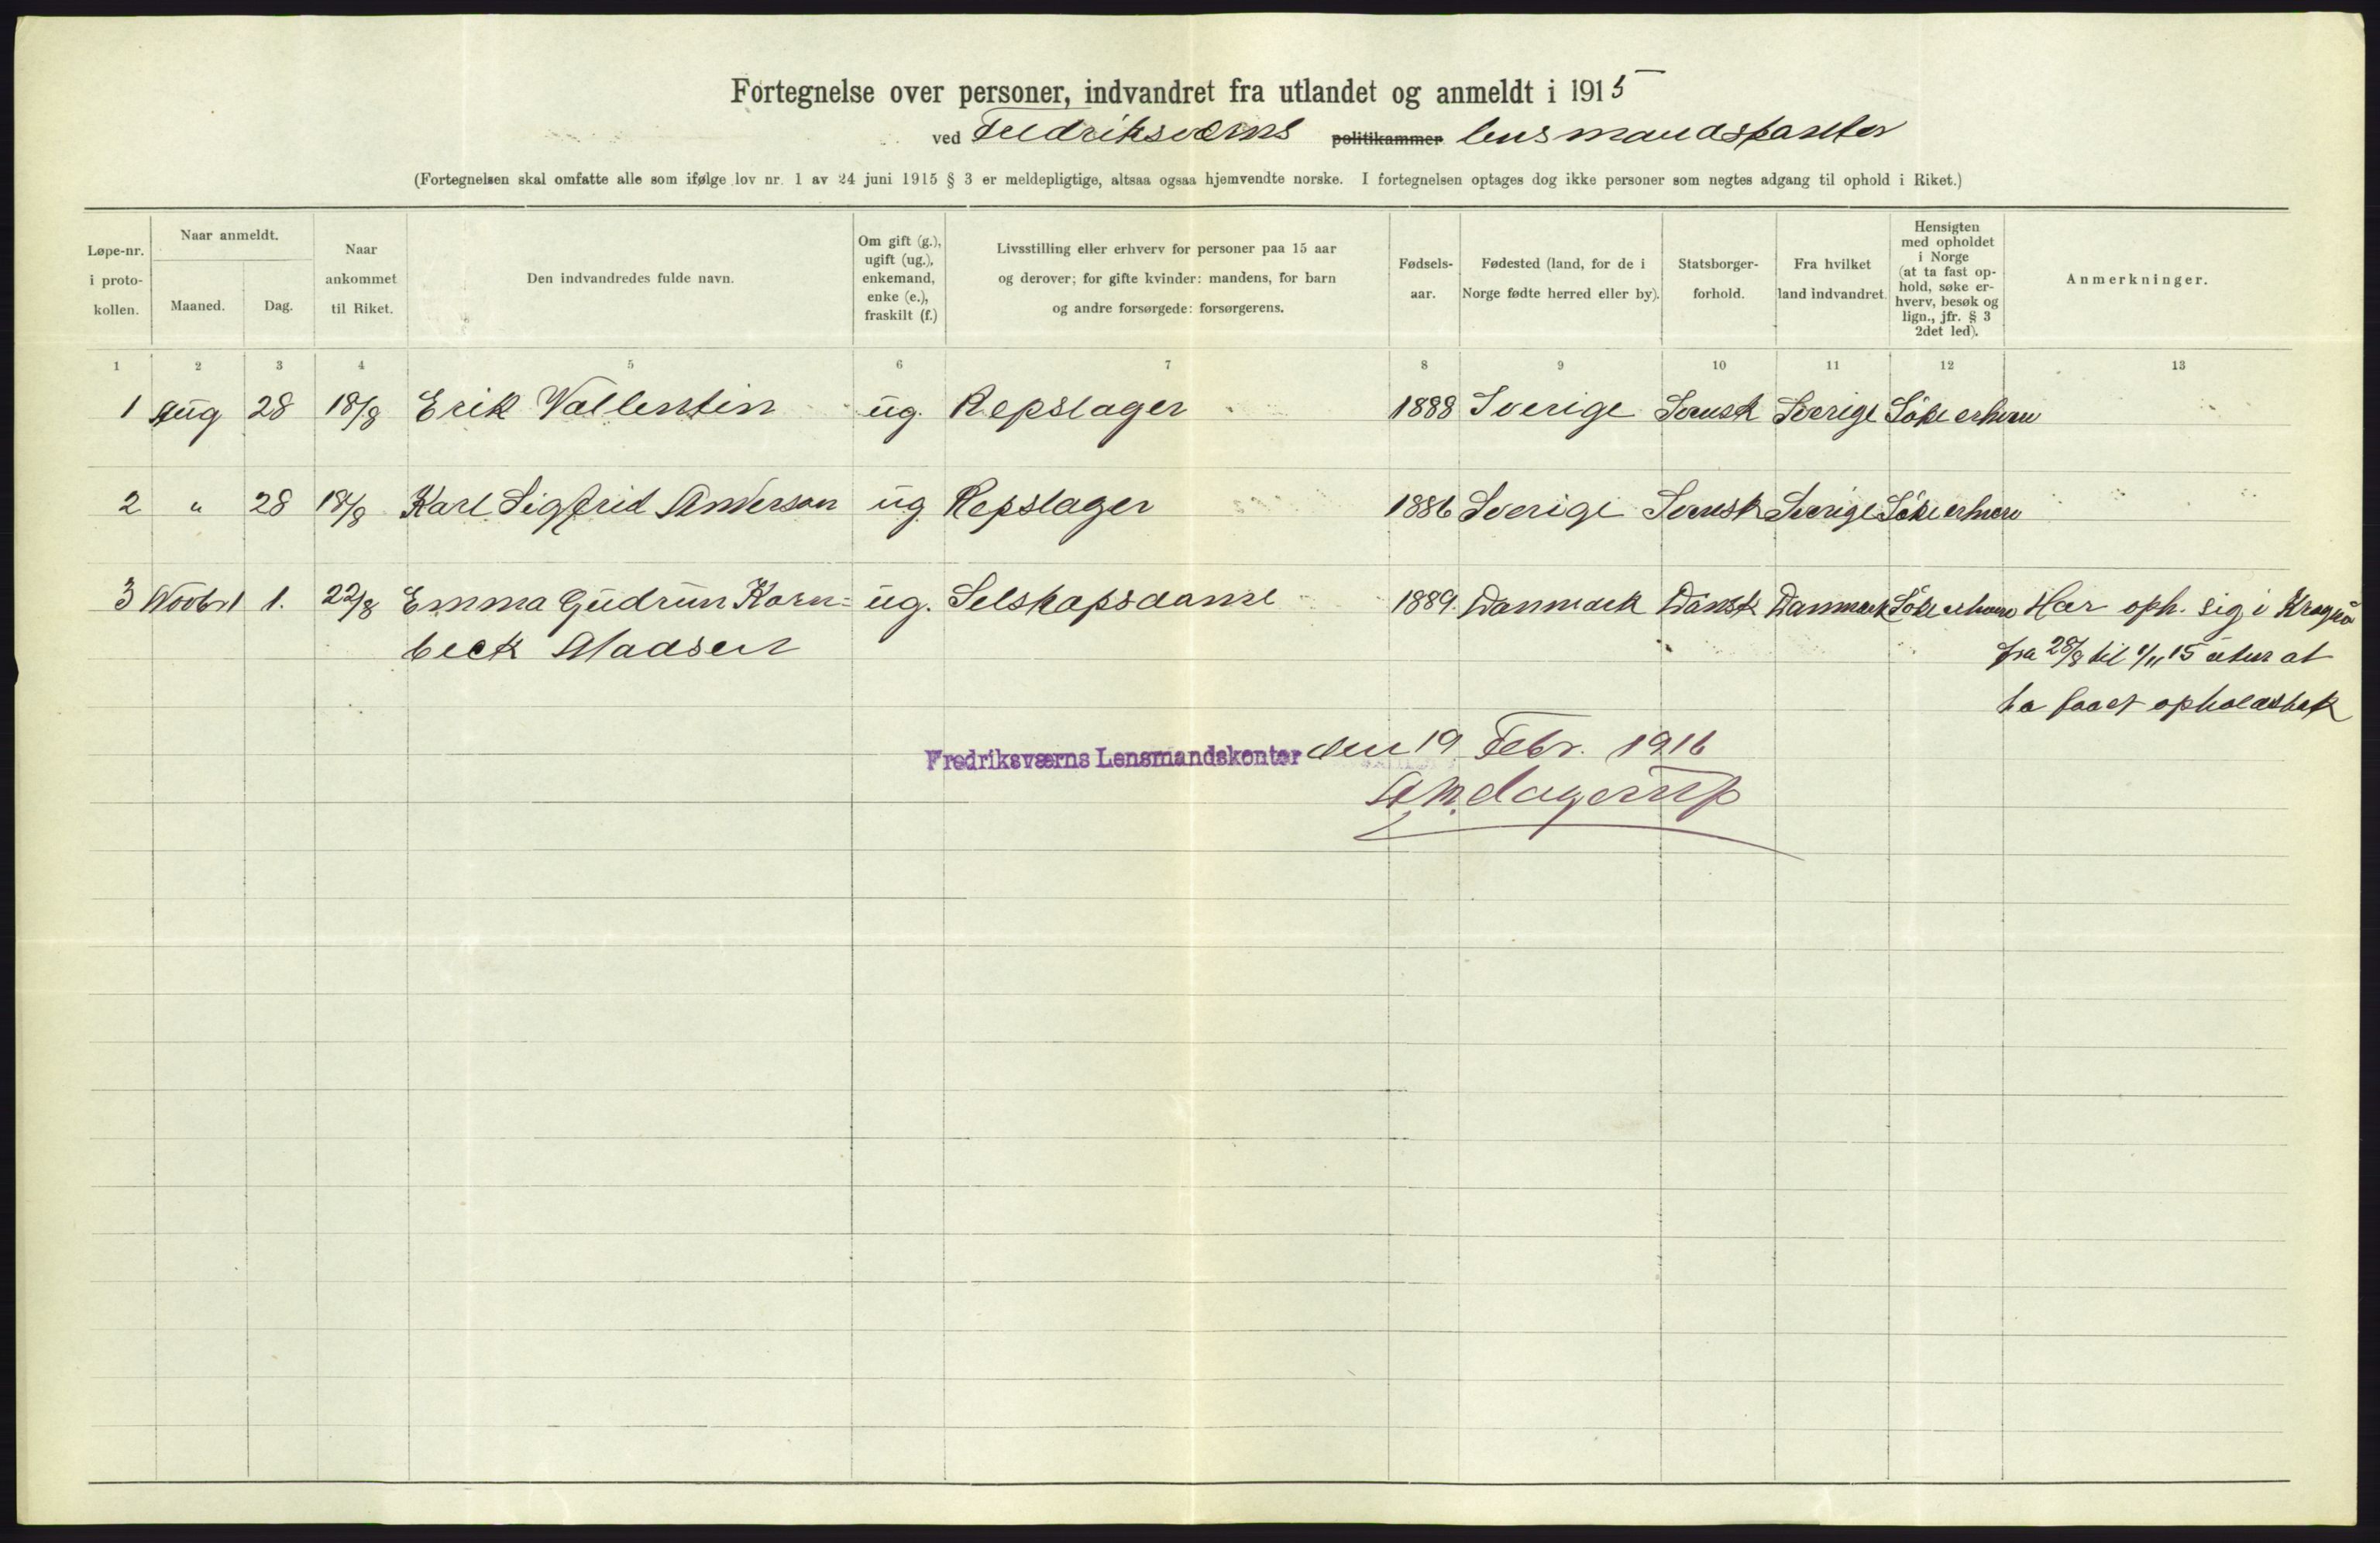 Fortegnelse over personer, indvandret fra utlandet og anmeldt i 1915
ved Fredriksværns politikammer lensmandskontor
(Fortegnelsen skal omfatte alle som ifølge lov nr. 1 av 24 juni 1915 § 3 er meldepligtige, altsaa ogsaa hjemvendte norske. I fortegnelsen optages dog ikke personer som negtes adgang til ophold i Riket.)
Løpe-nr.
i proto-
kollen.
Naar anmeldt.
Maaned.
Dag.
Naar
ankommet
til Riket.
Den indvandredes fulde navn.
Om gift (g.),
ugift (ug.),
enkemand,
enke (e.),
fraskilt (f.)
Livsstilling eller erhverv for personer paa 15 aar
og derover; for gifte kvinder: mandens, for barn
og andre forsørgede: forsørgerens.
Fødsels-
aar.
Fødested (land, for de i
Norge fødte herred eller by).
Statsborger-
forhold.
Fra hvilket
land indvandret.
Hensigten
med opholdet
i Norge
(at ta fast op-
hold, søke er-
hverv, besøk og
lign., jfr. § 3
2det led).
Anmerkninger.
1 2 3 4 5 6 7 8 9 10 11 12 13
1 Aug 28 18/8 Erik Vallentin ug. Repslager 1888 Sverige Svensk Sverige Söke erhverv
2 " 28 18/8 Karl Sigfrid Anderson ug Repslager 1886 Sverige Svensk Sverige Söke erhverv
3 Novbr 1. 22/8 Emma Gudrun Korn= ug. Selskapsdame 1889 Danmark Dansk Danmark Söke erhverv Har oph. sig i Kragrö
beck Madsen fra 28/8 til 1/11 15 uten at
ha faaet opholdsbok
Fredriksværns Lensmandskontor den 19 Febr. 1916